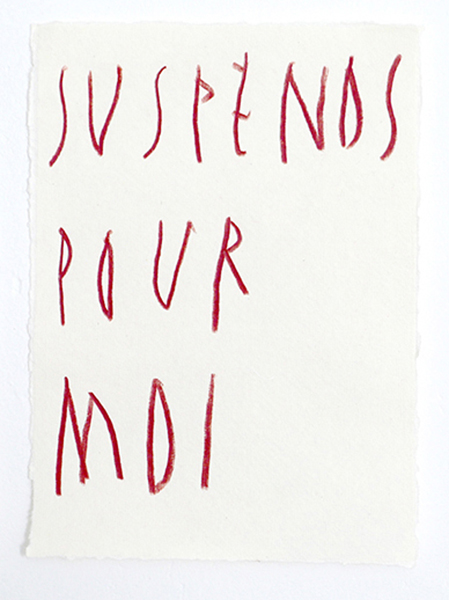 SUSPENDS
POUR
MOI